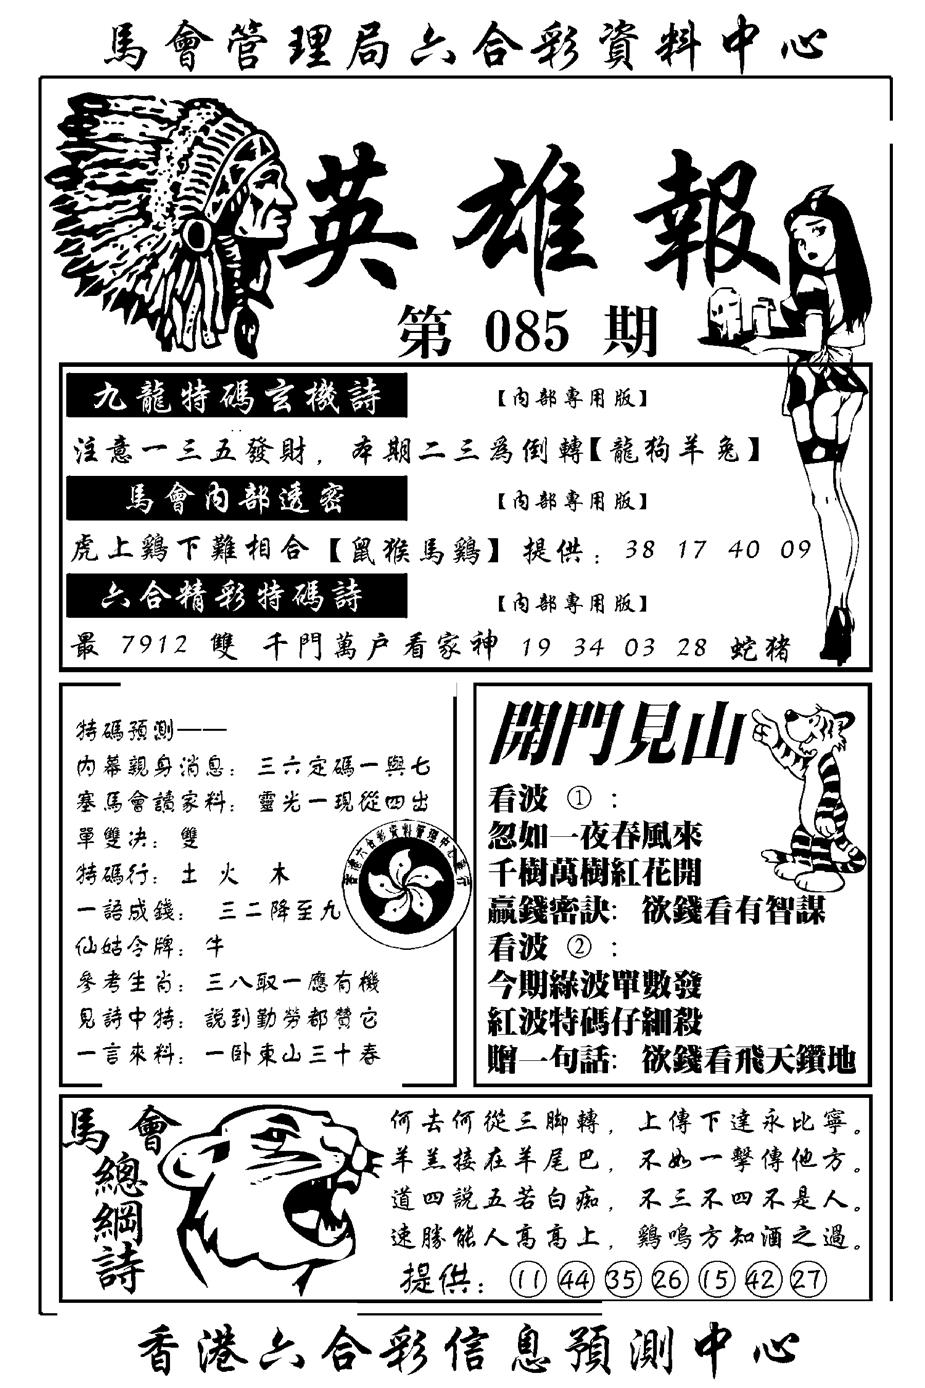 馬會管理局六合彩資料中心
英雄報
第 085 期
九龍特碼玄機詩 【內部專用版】
注意一三五發財，本期二三爲倒轉【龍狗羊兔】
馬會內部透密 【內部專用版】
虎上鷄下難相合【鼠猴馬鷄】 提供：38 17 40 09
六合精彩特碼詩 【內部專用版】
最 7912 雙 千門萬户看家神 19 34 03 28 蛇猪
特碼預測——
內幕親身消息：三六定碼一與七
塞馬會讀家料：靈光一現從四出
單雙決：雙
特碼行：土 火 木
一語成錢： 三二降至九
仙姑令牌：牛
參考生肖：三八取一應有機
見詩中特：説到勤勞都贊它
一言來料：一卧東山三十春
香港六合彩資料管理中心發行
開門見山
看波 ①：
忽如一夜春風來
千樹萬樹紅花開
贏錢密訣：欲錢看有智謀
看波 ②：
今期綠波單數發
紅波特碼仔細殺
贈一句話：欲錢看飛天鑽地
馬會
總綱詩
何去何從三脚轉，上傳下達永比寧。
羊羔接在羊尾巴，不如一擊傳他方。
道四説五若白痴，不三不四不是人。
速勝能人高高上，鷄鳴方知酒之過。
提供：⑪ ㊹ ㉟ ㉖ ⑮ ㊷ ㉗
香港六合彩信息預測中心